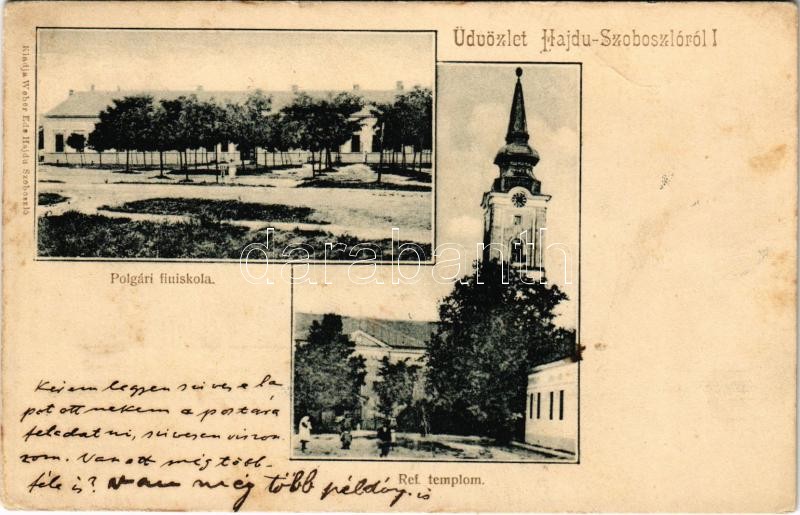 Üdvözlet Hajdu-Szoboszlóról!
Kiadja Weber Ede Hajdu Szoboszló
Polgári fiuiskola.
Ref. templom.
darabanth
Kérem legyen szives e la-
pot ott nekem a postára
feladatni, szivesen viszon-
zom. Van ott még több-
féle is? Van még több példány is